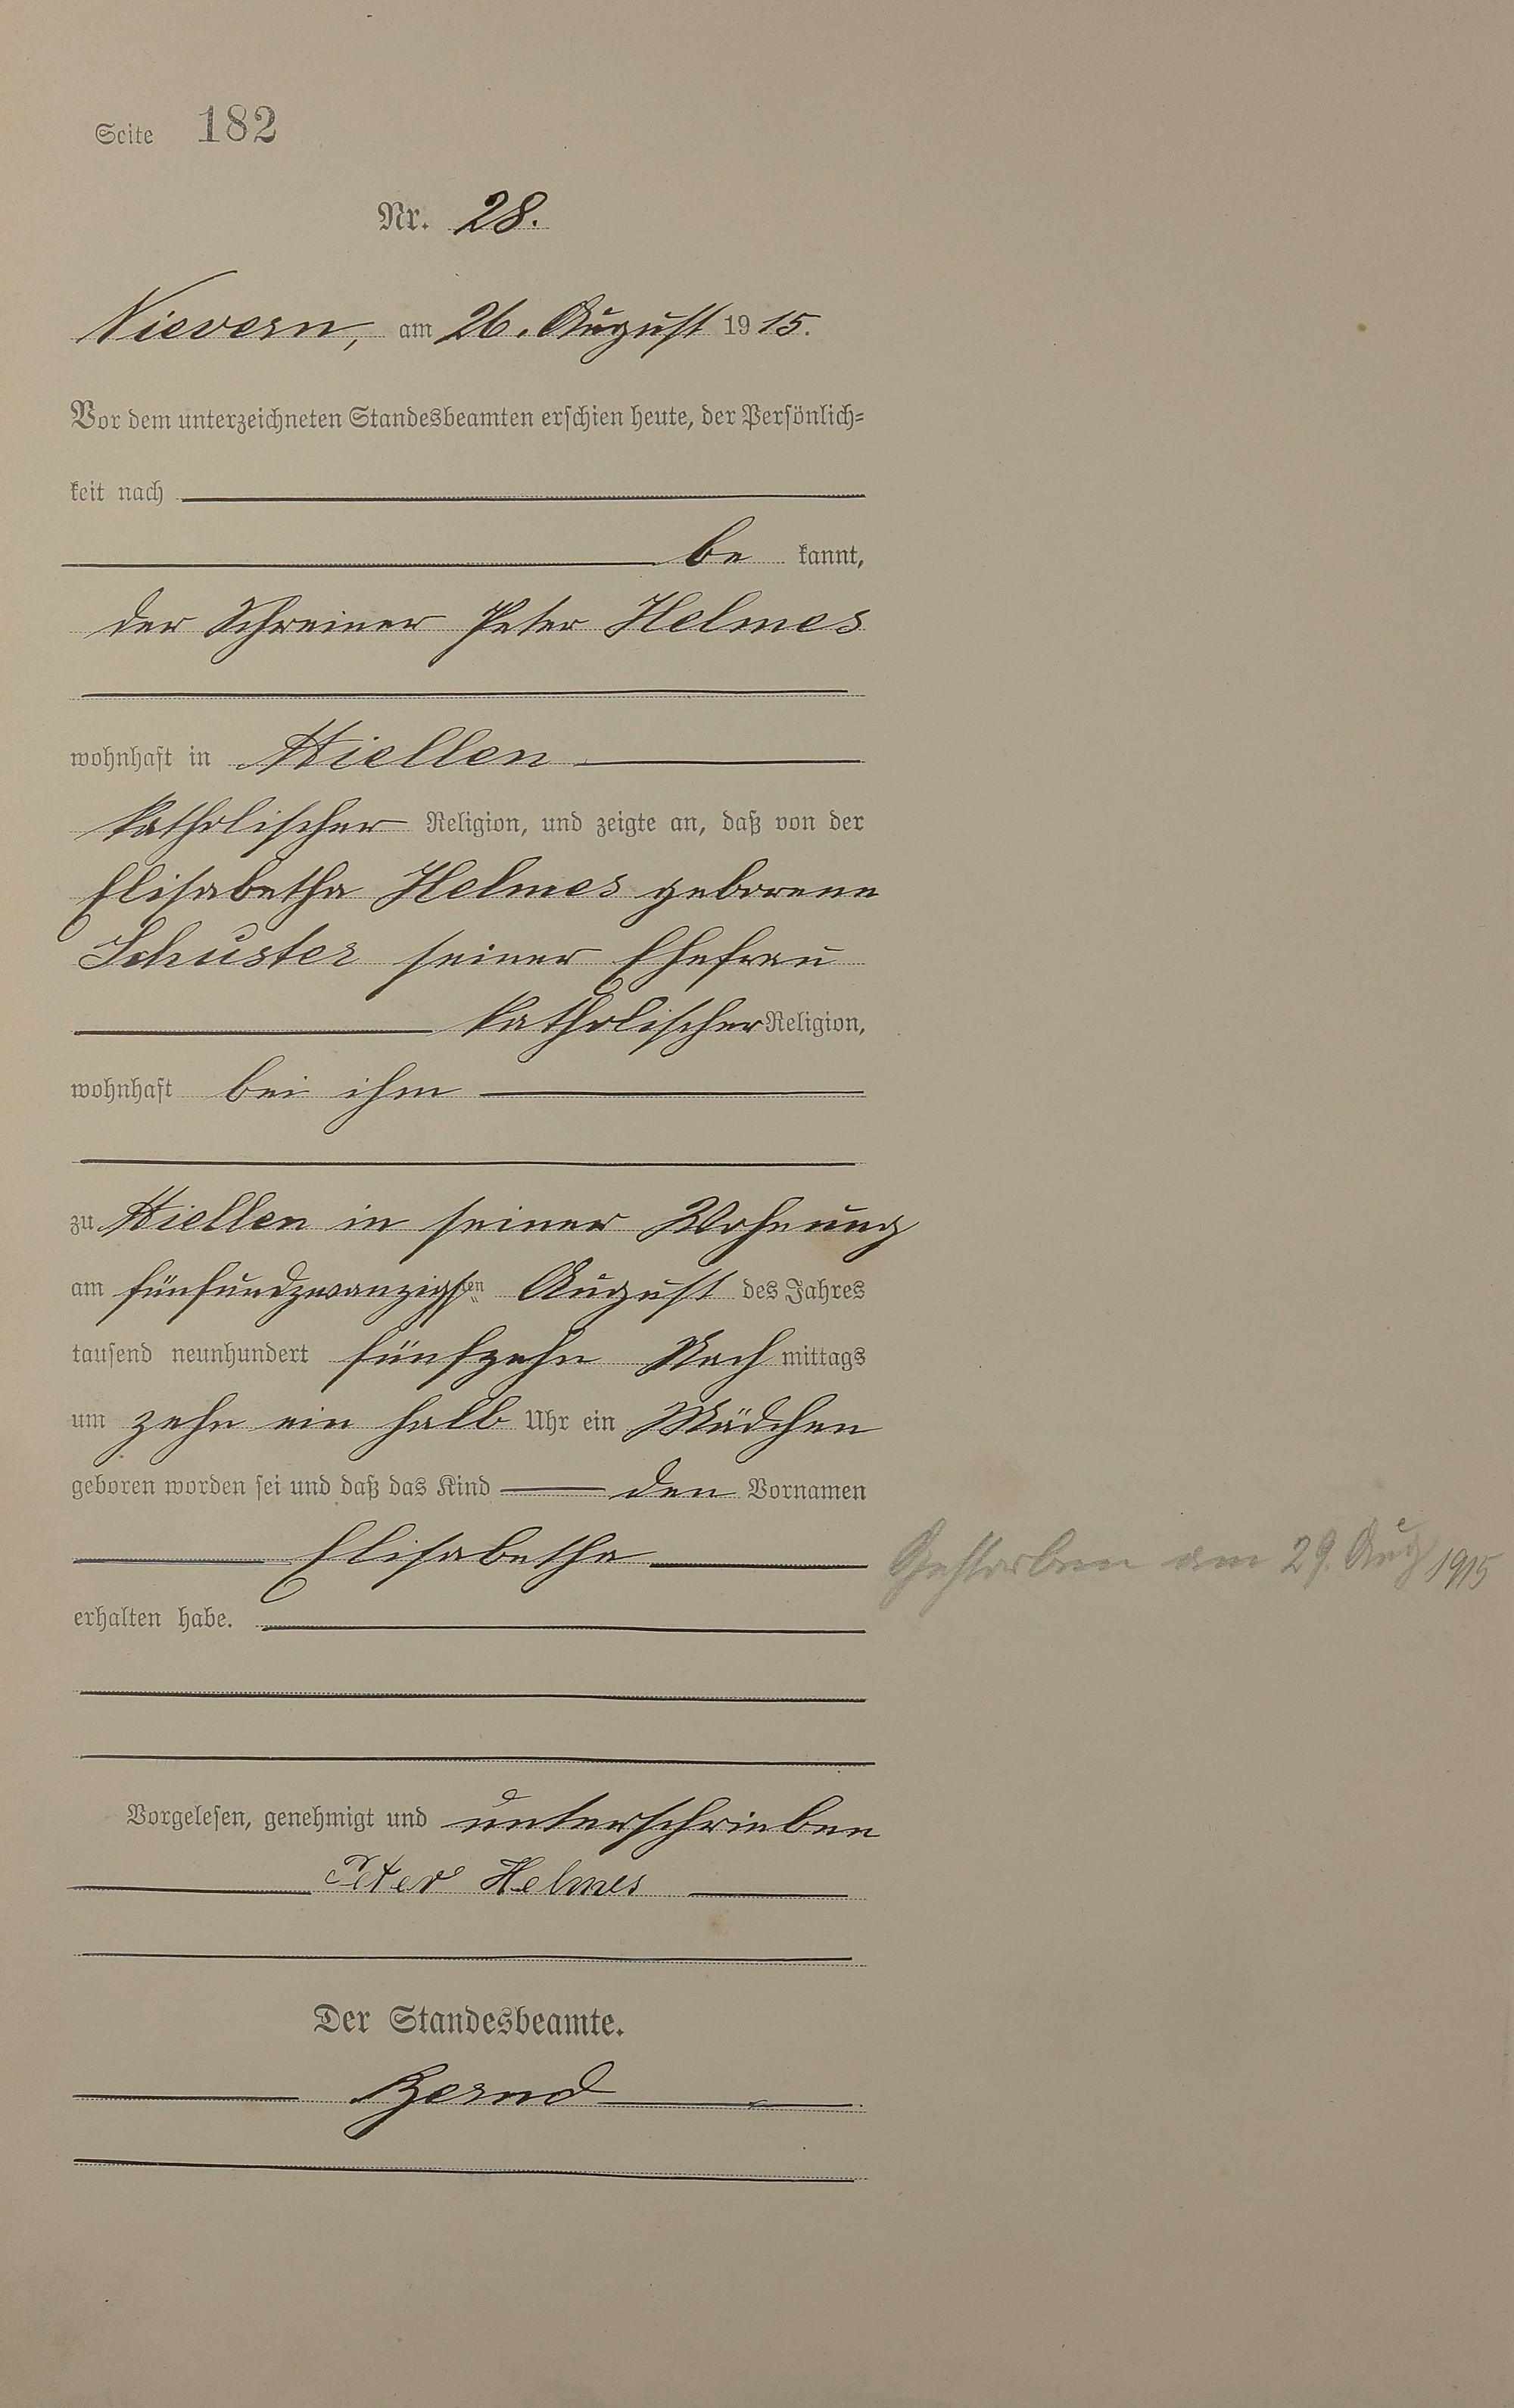 Seite 182
Nr. 28.
Nievern, am 26. August 1915.
Vor dem unterzeichneten Standesbeamten erschien heute, der Persönlich=
keit nach
be kannt,
der Schreiner Peter Helmes
wohnhaft in Miellen
katholischer Religion, und zeigte an, daß von der
Elisabetha Helmes geborene
Schuster seiner Ehefrau
katholischer Religion,
wohnhaft bei ihm
zu Miellen in seiner Wohnung
am fünfundzwanzigsten August des Jahres
tausend neunhundert fünfzehn Nach mittags
um zehn ein halb Uhr ein Mädchen
geboren worden sei und daß das Kind den Vornamen
Elisabetha
Gestorben am 29. Aug 1915
erhalten habe.
Vorgelesen, genehmigt und unterschrieben
Peter Helmes
Der Standesbeamte.
Bernd